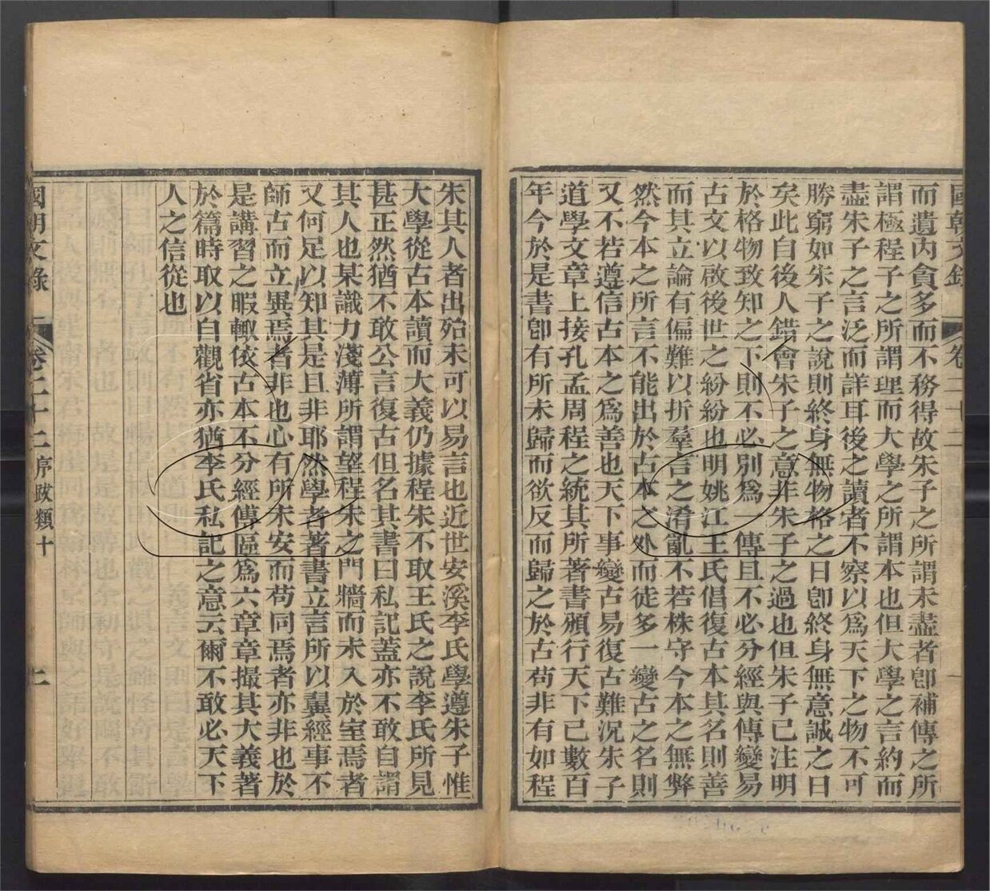 國朝文錄 卷二十二
而遺內貪多而不務得故朱子之所謂未盡者卽補傳之所
謂極程子之所謂理而大學之所謂本也但大學之言約而
盡朱子之言泛而詳耳後之讀者不察以爲天下之物不可
勝窮如朱子之說則終身無物格之日卽終身無意誠之日
矣此自後人錯會朱子之意非朱子之過也但朱子已注明
於格物致知之下則不必別爲一傳且不必分經與傳變易
古文以啟後世之紛紛也明姚江王氏倡復古本其名則善
而其立論有偏難以折羣言之淆亂不若株守今本之無弊
然今本之所言不能出於古本之外而徒多一變古之名則
又不若遵信古本之爲善也天下事變古易復古難況朱子
道學文章上接孔孟周程之統其所著書頒行天下已數百
年今於是書卽有所未歸而欲反而歸之於古苟非有如程
朱其人者出殆未可以易言也近世安溪李氏學遵朱子惟
大學從古本讀而大義仍據程朱不取王氏之說李氏所見
甚正然猶不敢公言復古但名其書曰私記蓋亦不敢自謂
其人也某識力淺薄所謂望程朱之門牆而未入於室焉者
又何足以知其是且非耶然學者著書立言所以羽翼經事不
師古而立異焉者非也心有所未安而苟同焉者亦非也於
是講習之暇輙依古本不分經傳區爲六章章撮其大義著
於篇時取以自觀省亦猶李氏私記之意云爾不敢必天下
人之信從也
國朝文錄 卷二十二 序跋類十 二